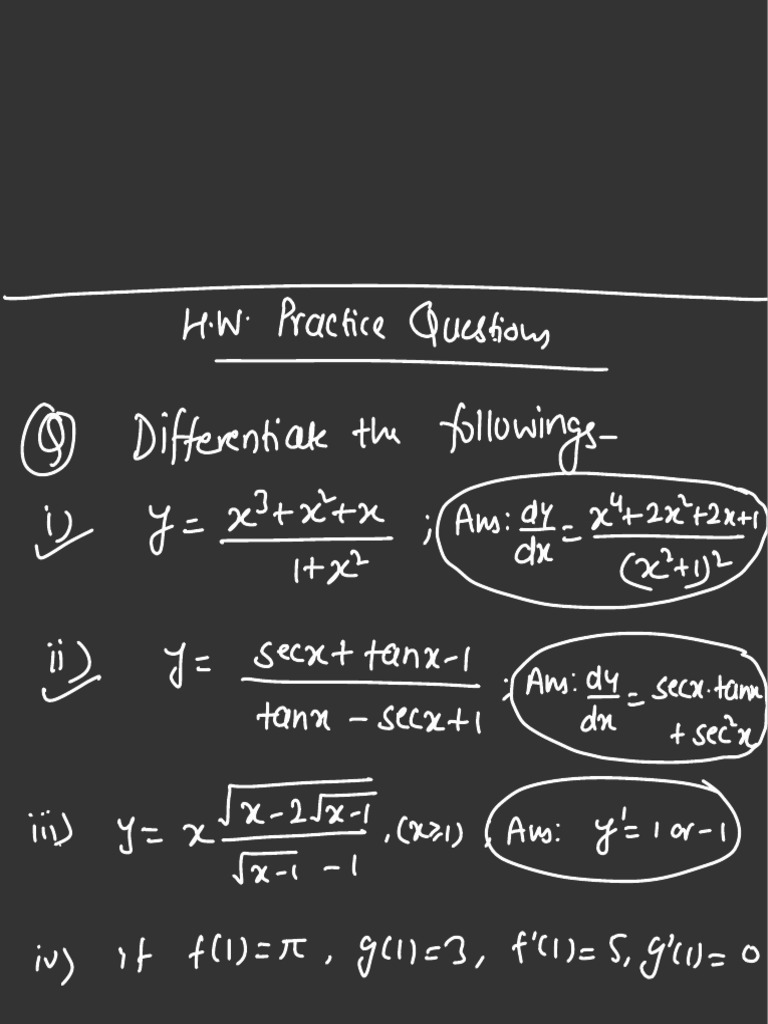 H.W. Practice Questions
Q Differentiate the followings-
i) y = (x³+x²+x)/(1+x²) ; Ans: dy/dx = (x⁴+2x²+2x+1)/(x²+1)²
ii) y = (secx + tanx-1)/(tanx - secx+1) ; Ans: dy/dx = secx.tanx + sec²x
iii) y = x √(x-2√(x-1))/(√(x-1) -1) , (x≥1) , Ans: y' = 1 or -1
iv) if f(1)=π, g(1)=3, f'(1)=5, g'(1)=0